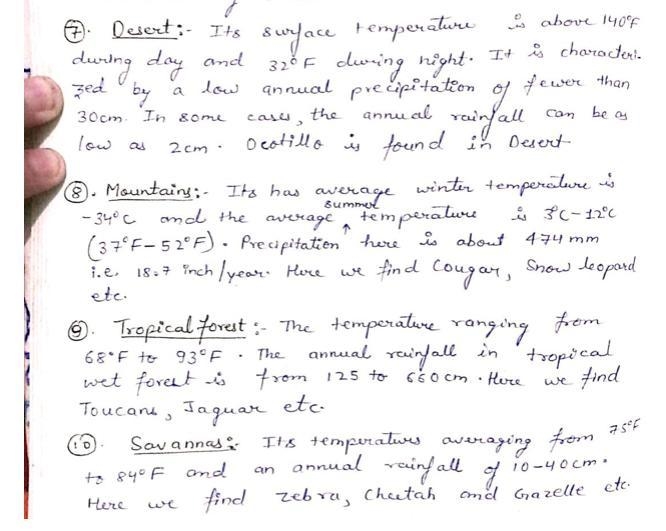 ⑦. Desert:- Its surface temperature is above 140°F
during day and 32°F during night. It is characteri-
zed by a low annual precipitation of fewer than
30cm. In some cases, the annual rainfall can be as
low as 2cm. Ocotillo is found in Desert
⑧. Mountains:- Its has average winter temperature is
-34°C and the average summer temperature is 3°C-12°C
(37°F-52°F). Precipitation here is about 474 mm
i.e. 18.7 inch/year. Here we find Cougar, Snow leopard
etc.
⑨. Tropical forest:- The temperature ranging from
68°F to 93°F. The annual rainfall in tropical
wet forest is from 125 to 660cm. Here we find
Toucans, Jaguar etc.
⑩. Savannas:- Its temperatures averaging from 75°F
to 84°F and an annual rainfall of 10-40cm.
Here we find zebra, Cheetah and Gazelle etc.